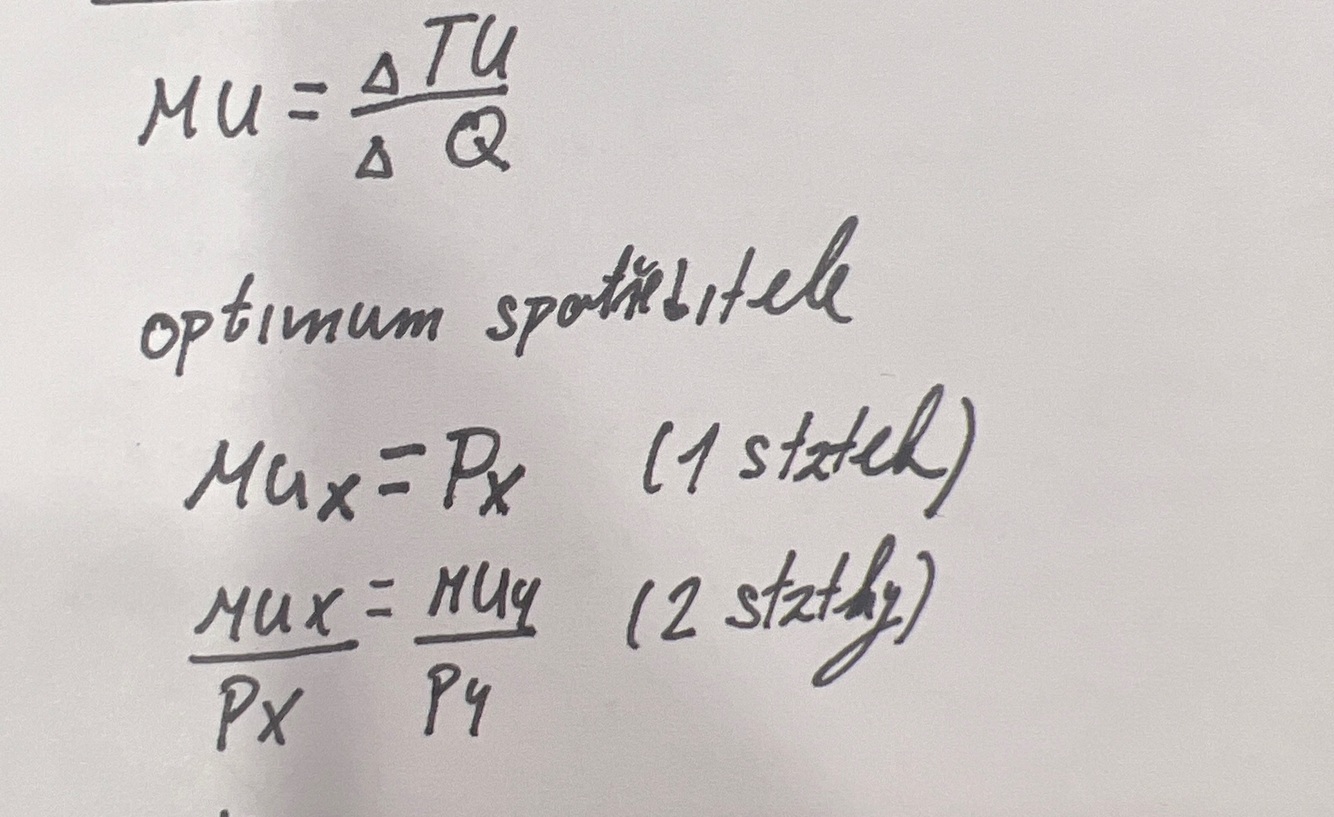 MU = ΔTU / ΔQ
optimum spotřebitele
MUx = Px (1 statek)
MUx / Px = MUy / Py (2 statky)